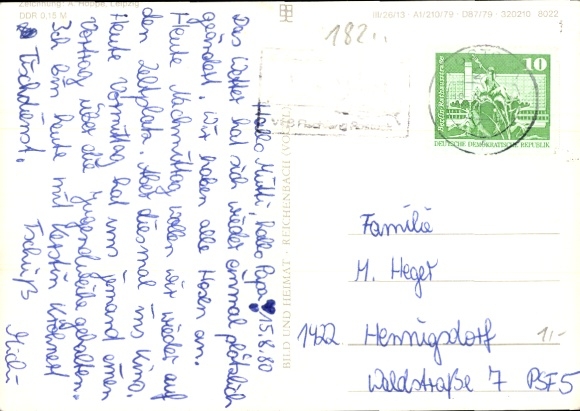 Zeichnung: K. Hoppe, Leipzig
DDR 0,15 M
III/26/13 · A1/210/79 · D87/79 · 320210 · 8022
182..
Hallo Mutti, hallo Papa! 15.8.80
Das Wetter hat sich wieder einmal plötzlich
geändert. Wir haben alle Hosen an.
Heute Nachmittag wollen wir wieder auf
den Zeltplatz. Aber diesmal ins Kino.
Heute Vormittag hat uns jemand einen
Vortrag über die Jugendweihe gehalten.
Ich bin heute mit Kerstin
Tischdienst.
Tschüß
BILD UND HEIMAT · REICHENBACH
Berlin Rathausstraße
10
DEUTSCHE DEMOKRATISCHE REPUBLIK
Familie
M. Heger
1422 Hennigsdorf
Waldstraße 7 PSF5
1,-